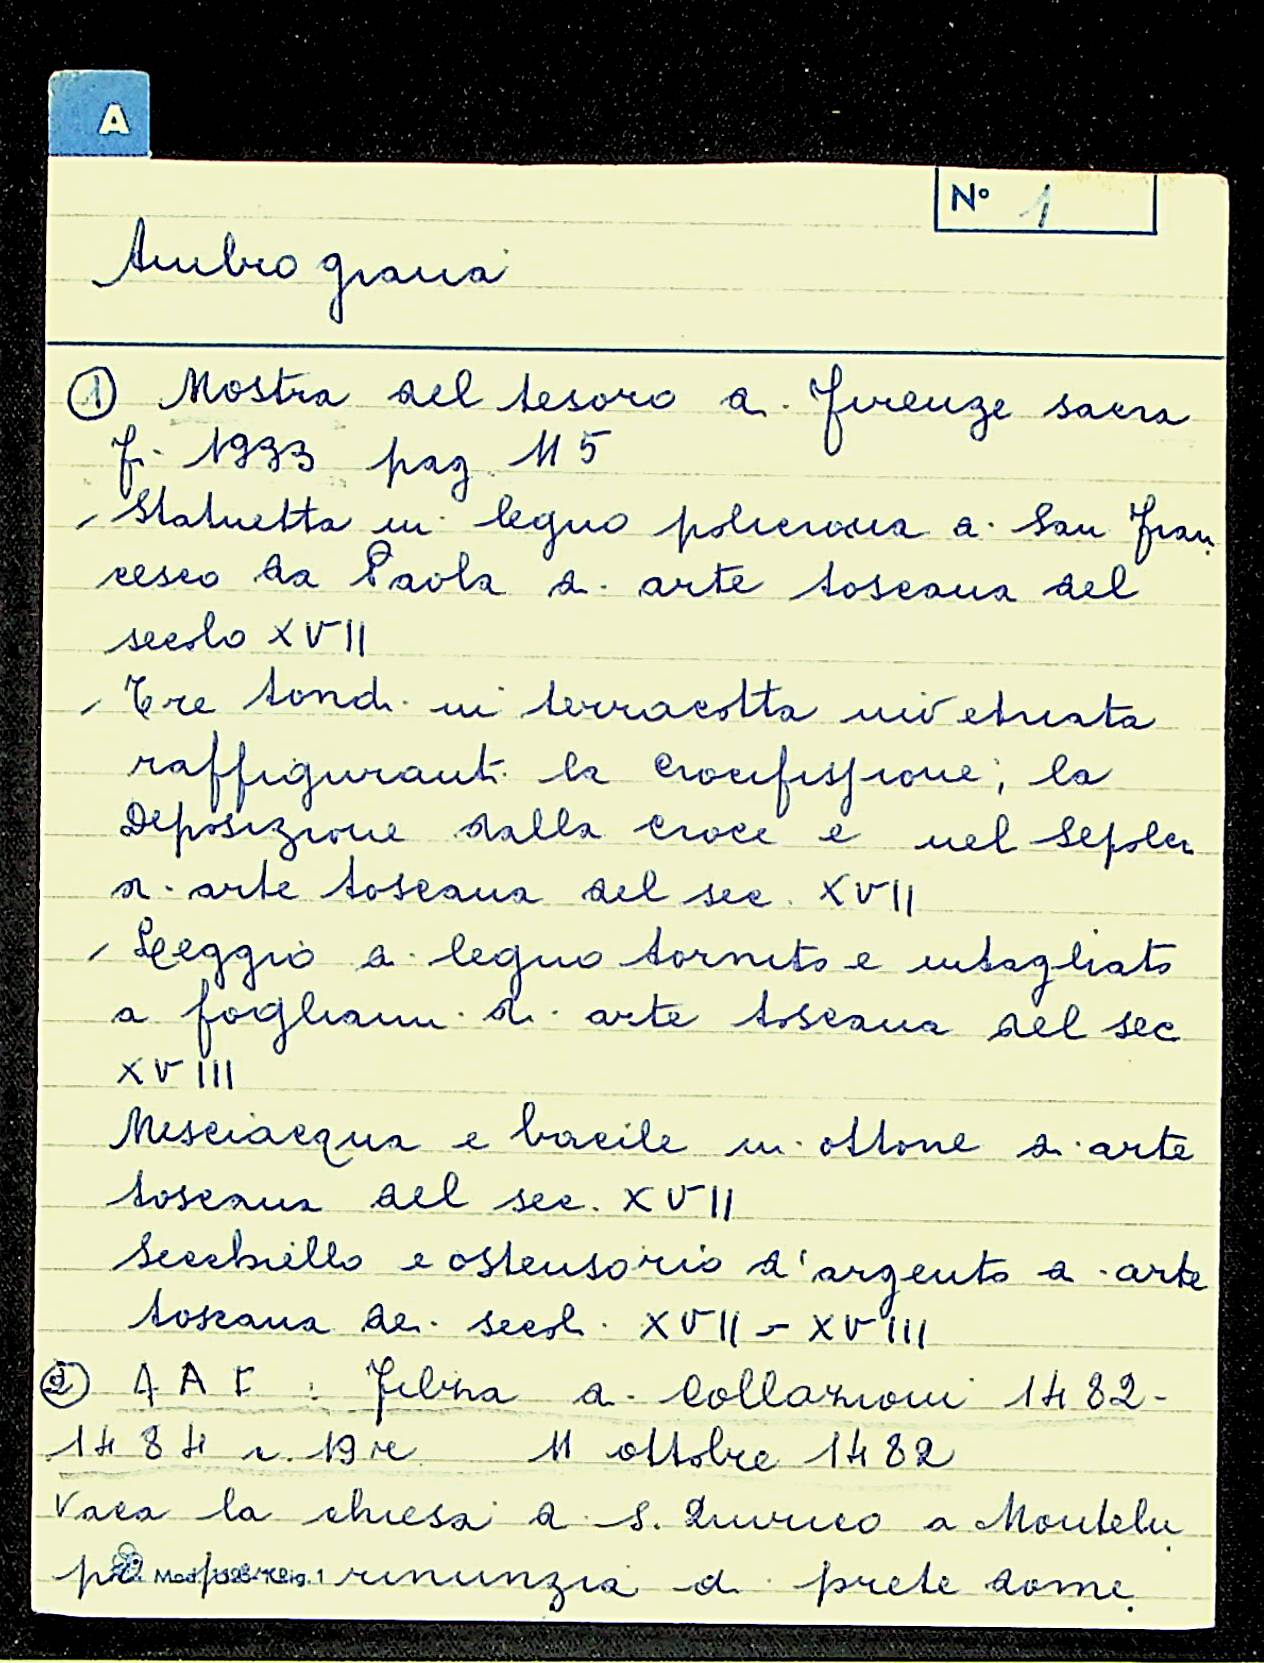 A
N° 1
Ambrogiana
1 Mostra del tesoro di Firenze sacra
F. 1933 pag. 115
Statuetta in legno policroma di San Fran
cesco da Paola di arte toscana del
secolo XVII
Tre tondi in terracotta invetriata
raffiguranti la Crocifissione; la
Deposizione dalla croce e nel Sepolcr
di arte toscana del sec. XVII
Leggio di legno tornito e intagliato
a fogliami di arte toscana del sec
XVIII
Mesciacqua e bacile in ottone di arte
toscana del sec. XVII
Secchiello e ostensorio d'argento di arte
toscana dei secoli XVII - XVIII
2 AAF: Filza di Collazioni 1482-
1484 c. 19 r 11 ottobre 1482
Vaca la chiesa di S. Quirico a Montelu
po per rinunzia di prete dome